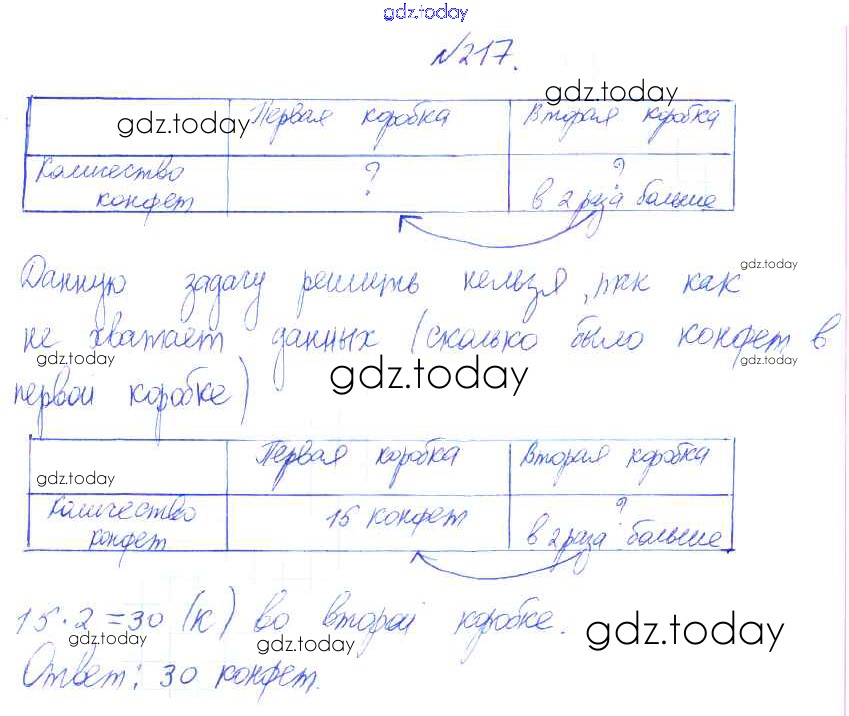 gdz.today
№217.
gdz.today
gdz.today Первая коробка Вторая коробка
Количество конфет ? ? в 2 раза больше
Данную задачу решить нельзя, так как
gdz.today
не хватает данных (сколько было конфет в
gdz.today gdz.today gdz.today
первой коробке)
gdz.today Первая коробка Вторая коробка
Количество конфет 15 конфет ? в 2 раза больше
15·2=30 (к) во второй коробке.
gdz.today gdz.today gdz.today
Ответ: 30 конфет.